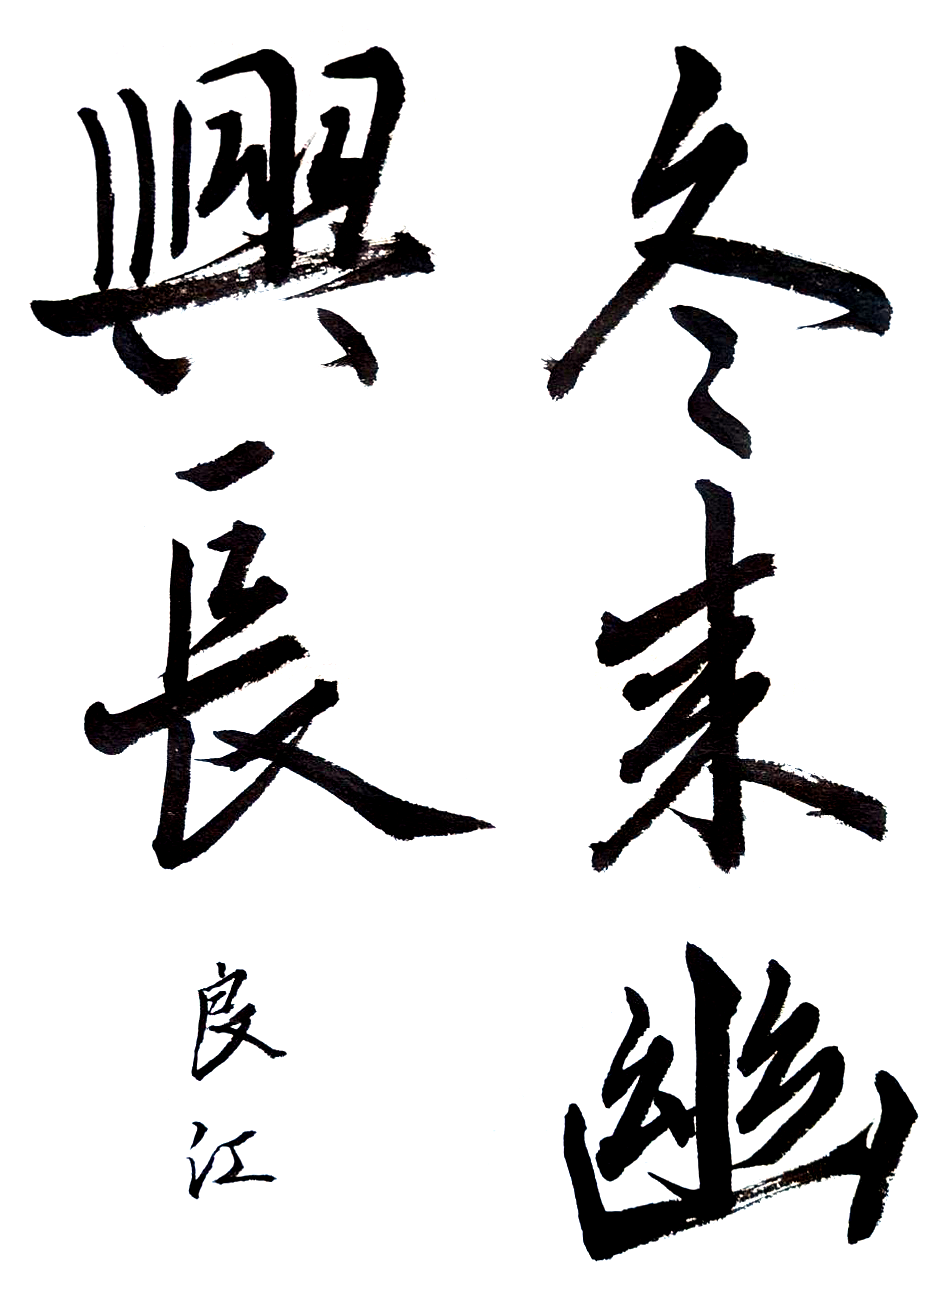 冬来幽
興長
良江